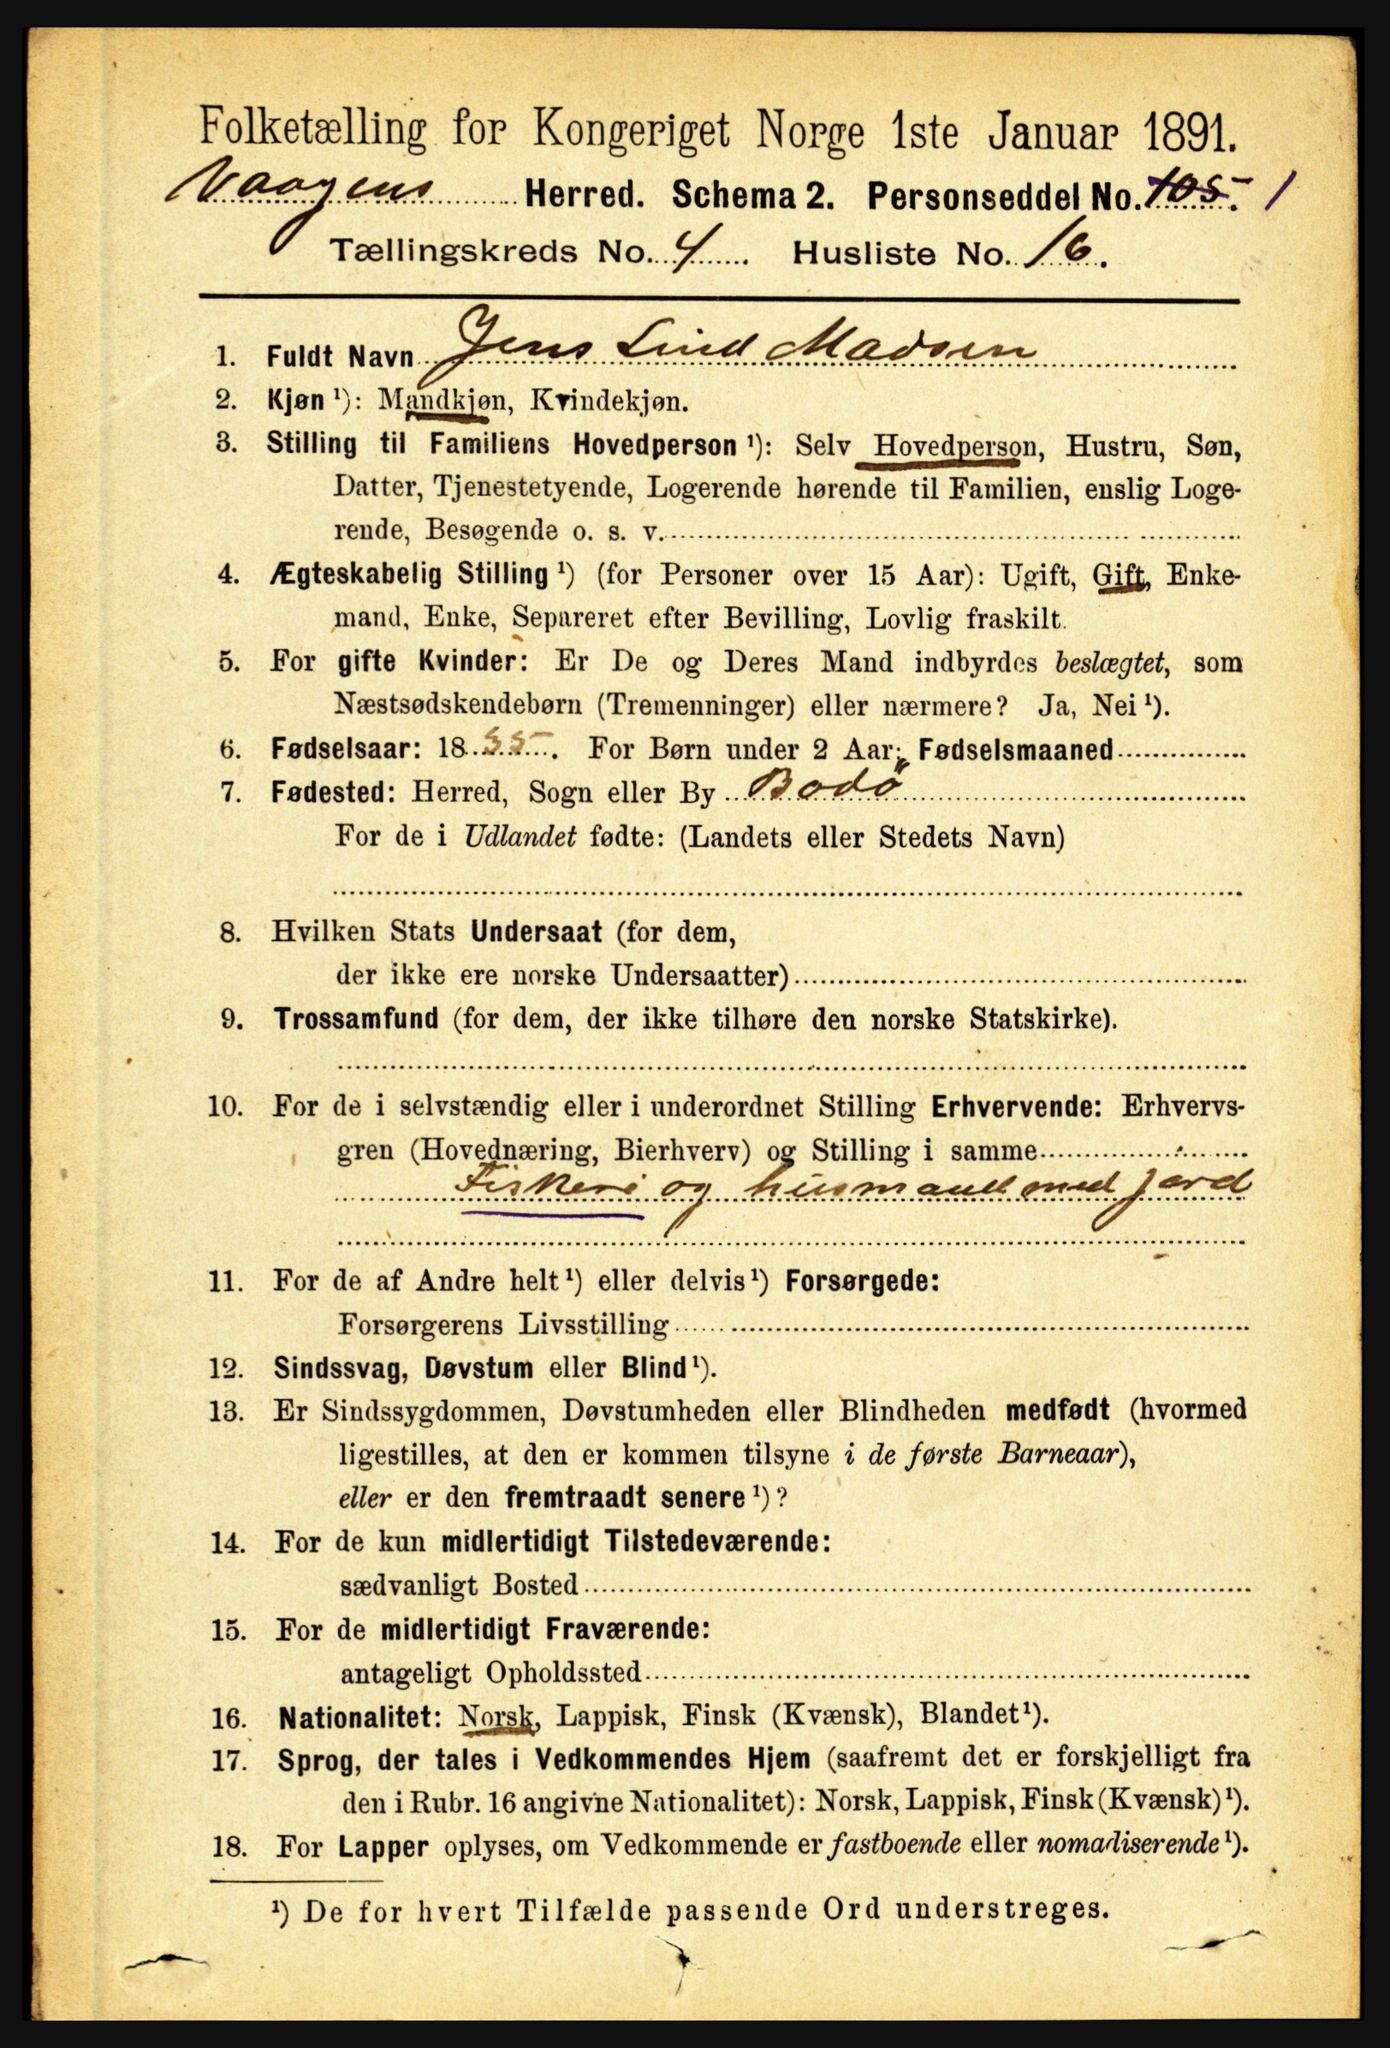 Folketælling for Kongeriget Norge 1ste Januar 1891.
Vaagens Herred. Schema 2. Personseddel No. 105. 1
Tællingskreds No. 4. Husliste No. 16.
1. Fuldt Navn Jens Lind Madsen
2. Kjøn ¹): Mandkjøn, Kvindekjøn.
3. Stilling til Familiens Hovedperson ¹): Selv Hovedperson, Hustru, Søn,
Datter, Tjenestetyende, Logerende hørende til Familien, enslig Loge-
rende, Besøgende o. s. v.
4. Ægteskabelig Stilling ¹) (for Personer over 15 Aar): Ugift, Gift, Enke-
mand, Enke, Separeret efter Bevilling, Lovlig fraskilt.
5. For gifte Kvinder: Er De og Deres Mand indbyrdes beslægtet, som
Næstsødskendebørn (Tremenninger) eller nærmere? Ja, Nei ¹).
6. Fødselsaar: 1855. For Børn under 2 Aar: Fødselsmaaned
7. Fødested: Herred, Sogn eller By Bodø
For de i Udlandet fødte: (Landets eller Stedets Navn)
8. Hvilken Stats Undersaat (for dem,
der ikke ere norske Undersaatter)
9. Trossamfund (for dem, der ikke tilhøre den norske Statskirke).
10. For de i selvstændig eller i underordnet Stilling Erhvervende: Erhvervs-
gren (Hovednæring, Bierhverv) og Stilling i samme
Fiskeri og husmand med jord
11. For de af Andre helt ¹) eller delvis ¹) Forsørgede:
Forsørgerens Livsstilling
12. Sindssvag, Døvstum eller Blind ¹).
13. Er Sindssygdommen, Døvstumheden eller Blindheden medfødt (hvormed
ligestilles, at den er kommen tilsyne i de første Barneaar),
eller er den fremtraadt senere ¹)?
14. For de kun midlertidigt Tilstedeværende:
sædvanligt Bosted
15. For de midlertidigt Fraværende:
antageligt Opholdssted
16. Nationalitet: Norsk, Lappisk, Finsk (Kvænsk), Blandet ¹).
17. Sprog, der tales i Vedkommendes Hjem (saafremt det er forskjelligt fra
den i Rubr. 16 angivne Nationalitet): Norsk, Lappisk, Finsk (Kvænsk) ¹).
18. For Lapper oplyses, om Vedkommende er fastboende eller nomadiserende ¹).
¹) De for hvert Tilfælde passende Ord understreges.